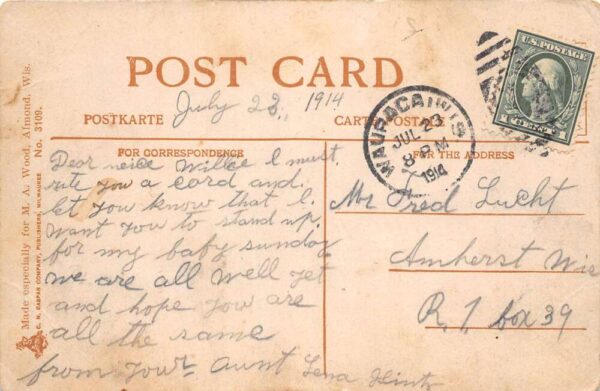 POST CARD
July 23,, 1914
POSTKARTE
U.S. POSTAGE
WAUPACA, WIS.
JUL 23
8 PM
1914
FOR CORRESPONDENCE
FOR THE ADDRESS
Dear neice Willie I must
rite you a card and
let you know that I
want you to stand up
for my baby sunday
we are all well yet
and hope you are
all the same
from your Aunt Lena
Mr Fred Lucht
Amherst Wis
R. 1 box 39
Made especially for M. A. Wood, Almond, Wis.
No. 3109.
C. N. CASPAR COMPANY, PUBLISHERS, MILWAUKEE